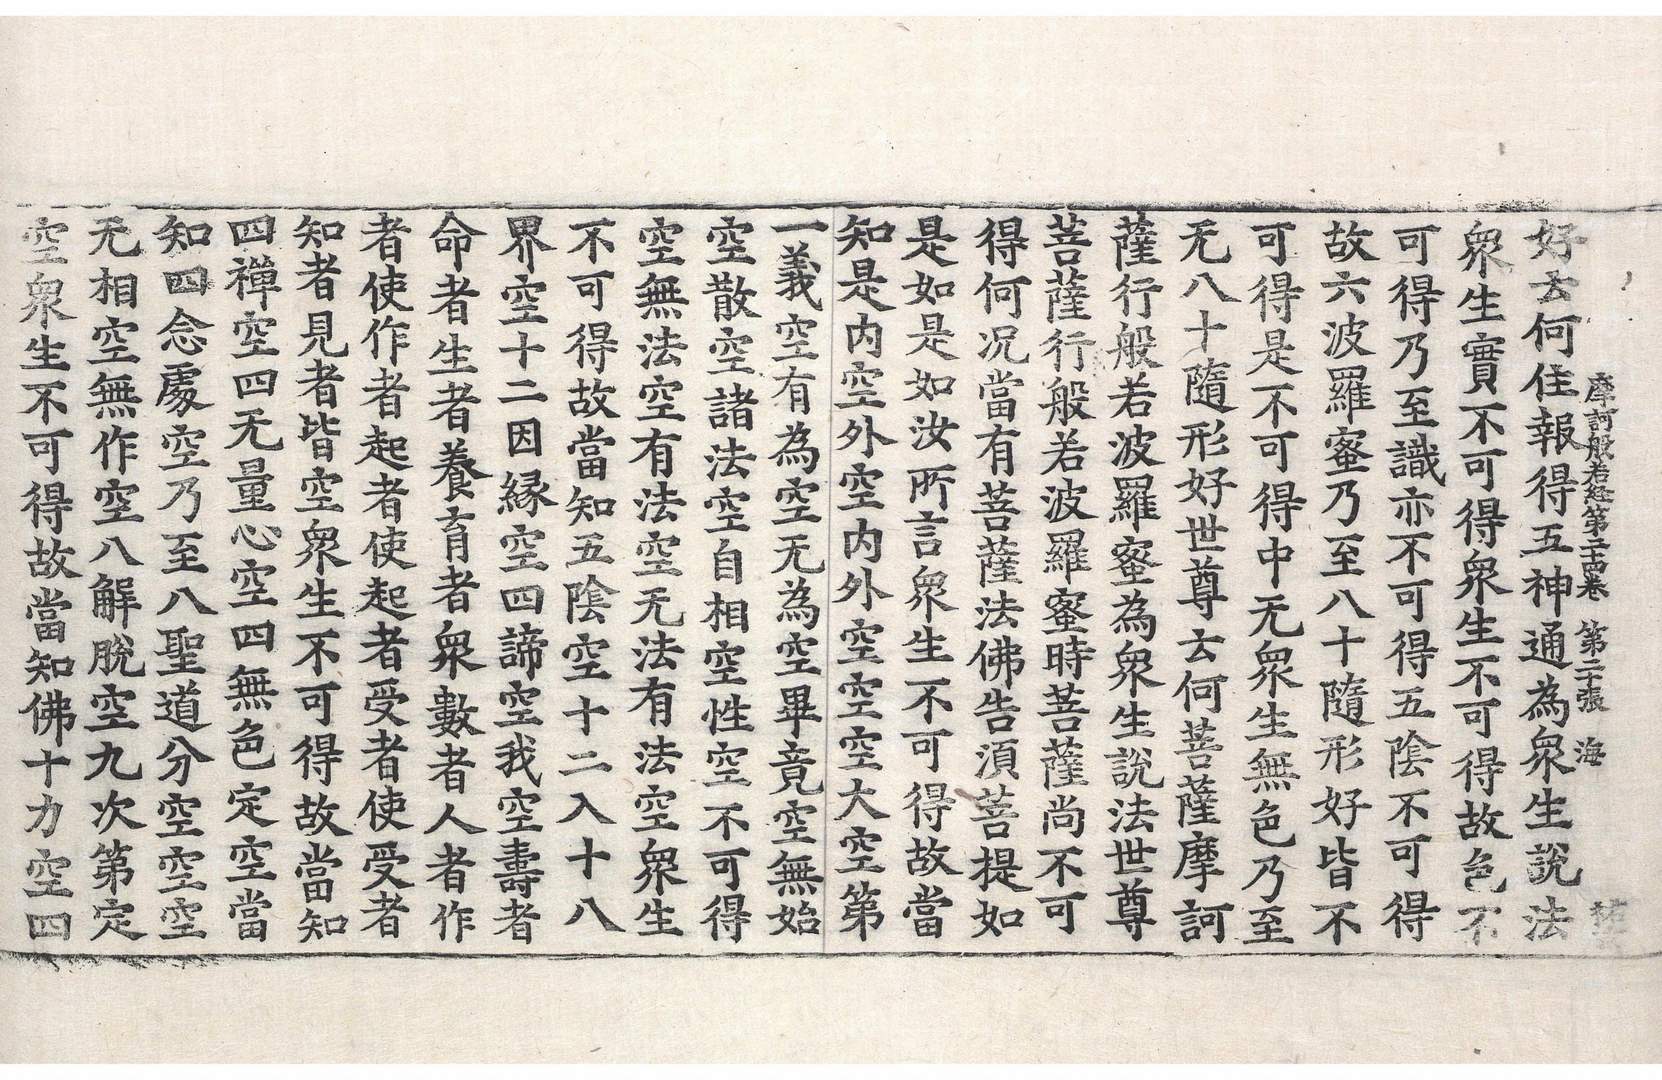 摩訶般若經第二十四卷 第二十張 海
好去何住報得五神通為衆生說法
衆生實不可得衆生不可得故色不
可得乃至識亦不可得五陰不可得
故六波羅蜜乃至八十隨形好皆不
可得是不可得中无衆生無色乃至
无八十隨形好世尊去何菩薩摩訶
薩行般若波羅蜜為衆生說法世尊
菩薩行般若波羅蜜時菩薩尚不可
得何况當有菩薩法佛告湏菩提如
是如是如汝所言衆生不可得故當
知是内空外空内外空空空大空第
一義空有為空无為空畢竟空無始
空散空諸法空自相空性空不可得
空無法空有法空无法有法空衆生
不可得故當知五陰空十二入十八
界空十二因緣空四諦空我空壽者
命者生者養育者衆數者人者作
者使作者起者使起者受者使受者
知者見者皆空衆生不可得故當知
四禪空四无量心空四無色定空當
知四念處空乃至八聖道分空空空
无相空無作空八解脫空九次第定
空衆生不可得故當知佛十力空四